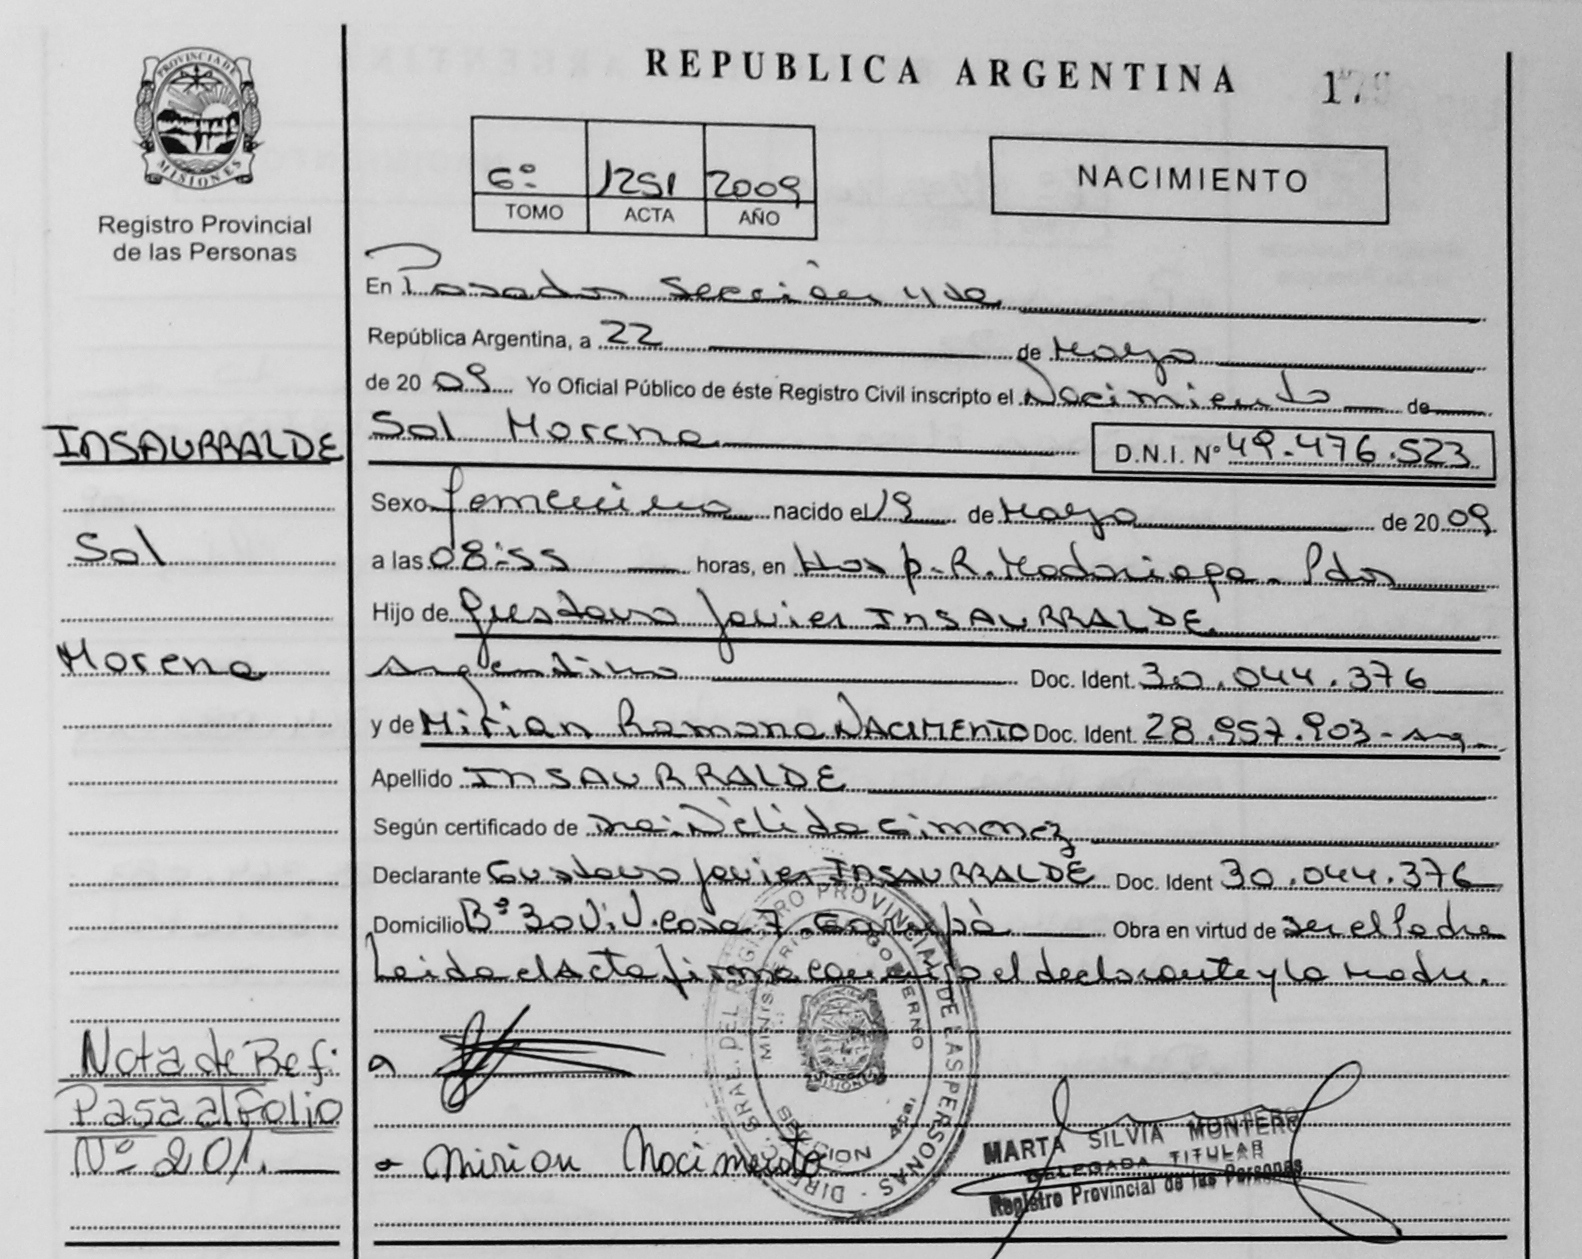 REPUBLICA ARGENTINA
PROVINCIA DE
MISIONES
Registro Provincial
de las Personas
6º 1251 2009
TOMO ACTA AÑO
NACIMIENTO
En Posadas Sección 4ta
República Argentina, a 22 de Mayo
de 2009 Yo Oficial Público de éste Registro Civil inscripto el Nacimiento de
INSAURRALDE
Sol Morena D.N.I. Nº 49.476.523
Sexo femenino nacido el 19 de Mayo de 2009
Sol
a las 08:55 horas, en Hosp. R. Madariaga - Pdas
Hijo de Gustavo Javier INSAURRALDE
Morena
Argentino Doc. Ident. 30.044.376
y de Mirian Ramona NACIMENTO Doc. Ident. 28.957.903 - Arg
Apellido INSAURRALDE
Según certificado de Dra: Nélida Gimenez
Declarante Gustavo Javier INSAURRALDE Doc. Ident 30.044.376
Domicilio Bº 30 Viv. casa 7. Garupá Obra en virtud de ser el Padre
Leida el Acta firma conmigo el declarante y la madre.
Nota de Ref:
Pasa al Folio
Nº 201.
Mirian Nacimento
DIREC. GRAL. DEL REGISTRO PROVINCIAL DE LAS PERSONAS
MINISTERIO DE GOBIERNO
MISIONES
SECCION 4ta.
MARTA SILVIA MONTERO
DELEGADA TITULAR
Registro Provincial de las Personas